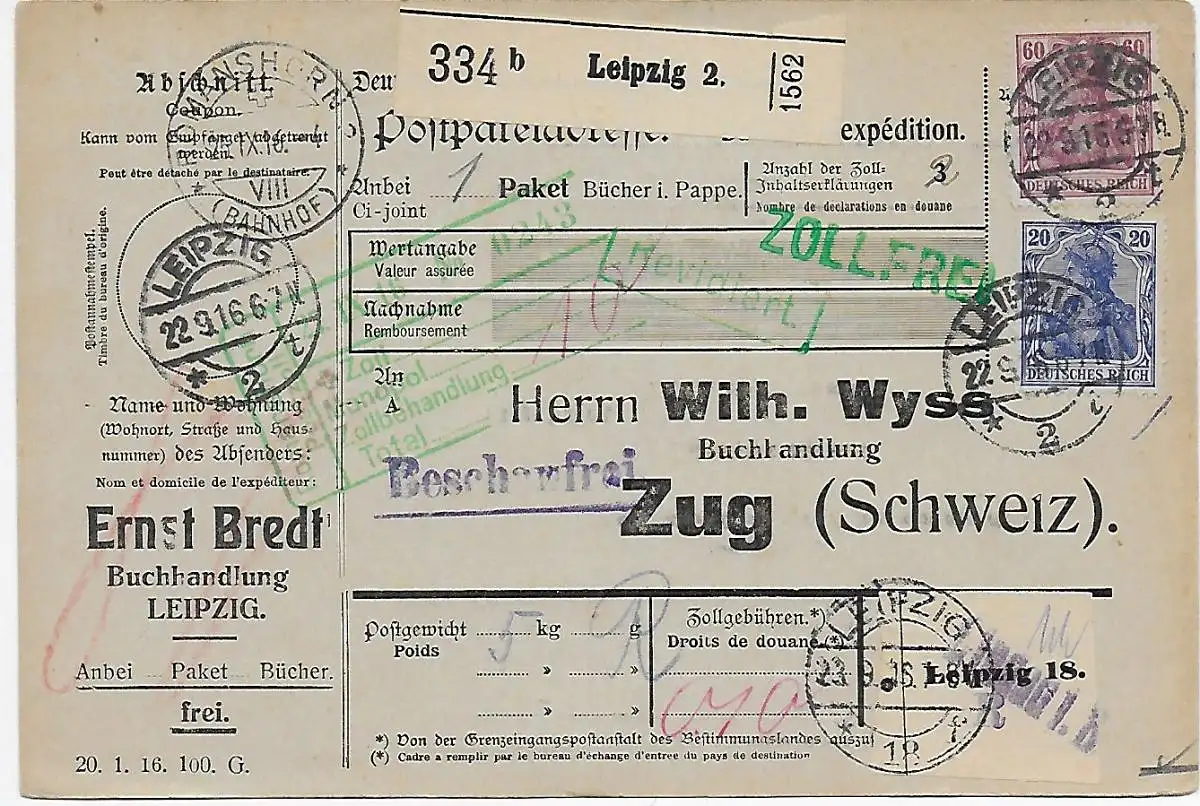 334 b Leipzig 2. 1562
Abschnitt.
Coupon.
Kann vom Empfänger abgetrennt
werden.
Peut être détaché par le destinataire.
VIII
(BAHNHOF)
Postannahmestempel.
Timbre du bureau d'origine.
LEIPZIG
22.9.16.6-7N.
* 2 t
Name und Wohnung
(Wohnort, Straße und Haus-
nummer) des Absenders:
Nom et domicile de l'expéditeur:
Ernst Bredt
Buchhandlung
LEIPZIG.
Anbei Paket Bücher.
frei.
20. 1. 16. 100. G.
Deu
Postpaketadresse. expédition.
Anbei 1 Paket Bücher i. Pappe.
Ci-joint
Anzahl der Zoll-
Inhaltserklärungen 3
Nombre de declarations en douane
Wertangabe
Valeur assurée
Nachnahme
Remboursement
0243
Revidiert.
ZOLLFREI
10
Zoll
Zollbehandlung
Total
An
A
Herrn Wilh. Wyss
Buchhandlung
Beschaufrei
Zug (Schweiz).
60 60
DEUTSCHES REICH
LEIPZIG
22.9.16.6-7N.
* 2 t
20 20
DEUTSCHES REICH
LEIPZIG
22.9
* 2 t
Postgewicht 5 kg g
Poids » »
» »
R
Zollgebühren.*)
Droits de douane.(*)
010
LEIPZIG
23.9.16.
* 18 f
Leipzig 18.
*) Von der Grenzeingangspostanstalt des Bestimmungslandes auszuf
(*) Cadre a remplir par le bureau d'échange d'entree du pays de destination